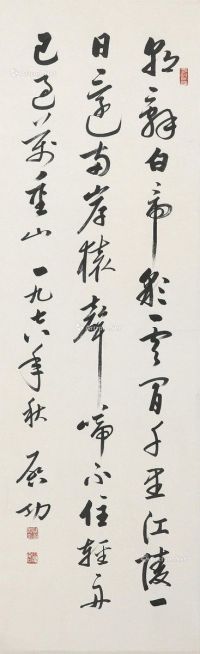 朝辞白帝彩云间千里江陵一
日还两岸猿声啼不住轻舟
已过万重山一九七八年秋启功